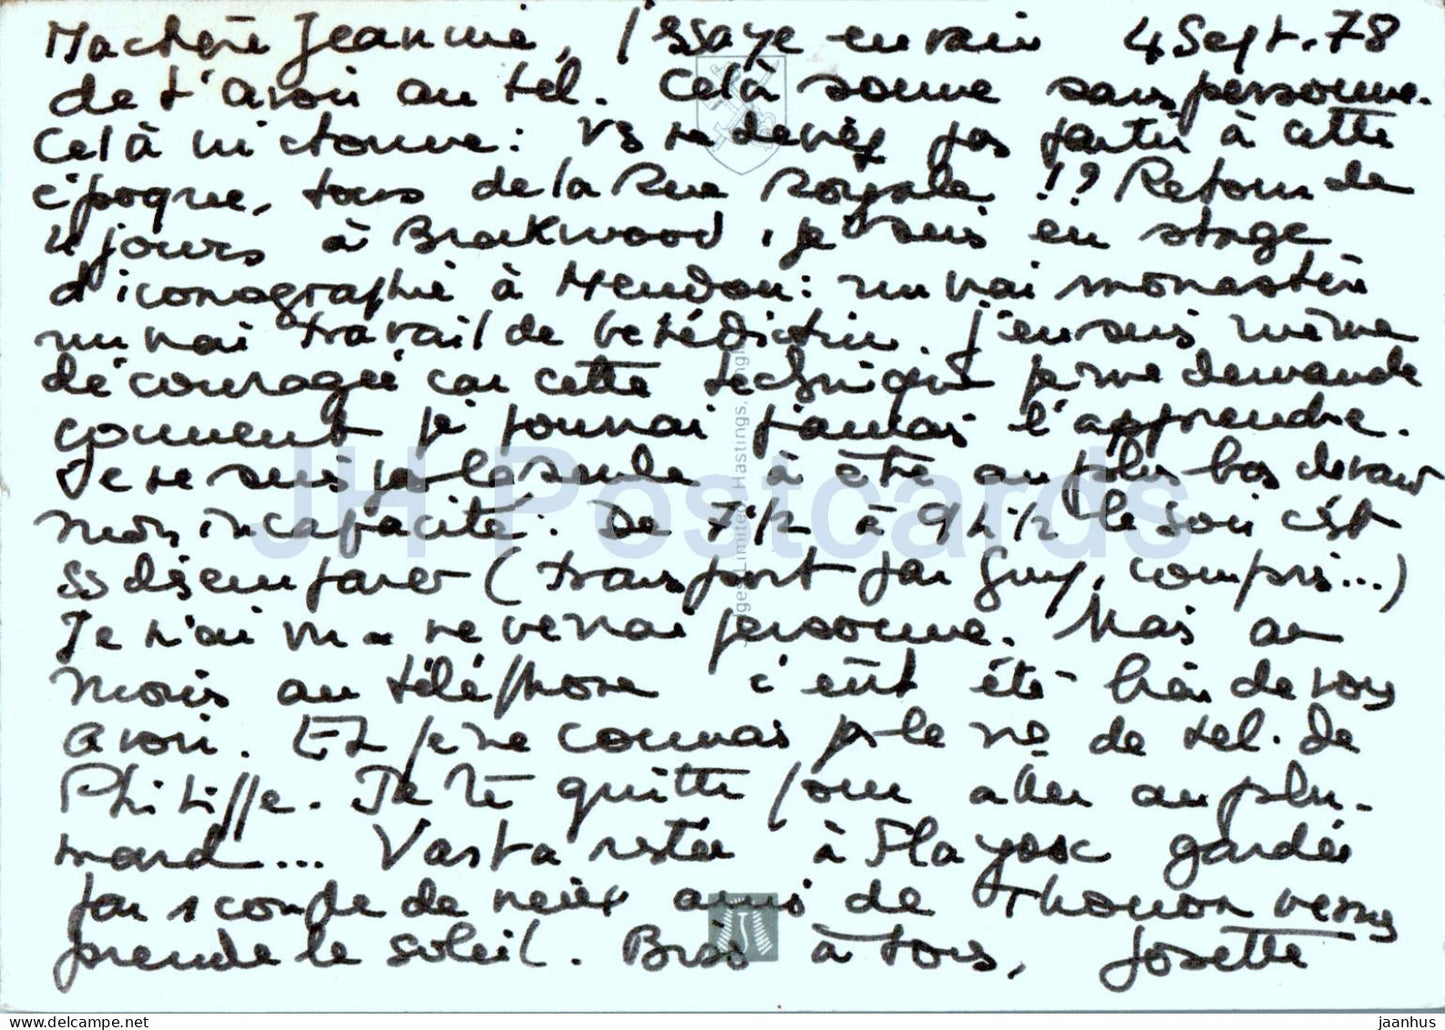 Ma chère Jeannine, j'essaye en vain 4 Sept. 78
de t'avoir au tél. Celà sonne sans personne.
Celà m'étonne : Vs ne deviez pas partir à cette
époque, tous de la Rue Royale !? Retour de
4 jours à Brookwood, je suis en stage
d'iconographie à Meudon : un vrai monastère
un vrai travail de bénédictin. J'en suis même
découragée car cette technique je me demande
comment je pourrai jamais l'apprendre.
Je ne suis pas la seule à être au plus bas devant
mon incapacité. De 7h 1/2 à 9h 1/2 le soir c'est
ss désemparer (transport par Guy, compris...)
Je n'ai vu - ne verrai personne. Mais au
moins au téléphone c'eût été bien de vous
avoir. Et je ne connais ps le no de tél. de
Philippe. Je te quitte pour aller au plu-
mard... Vasta restée à Flayosc gardée
par 1 couple de vieux amis de Thonon venus
prendre le soleil. Bises à tous, Josette
Judges Limited, Hastings, Engl
JH Postcards